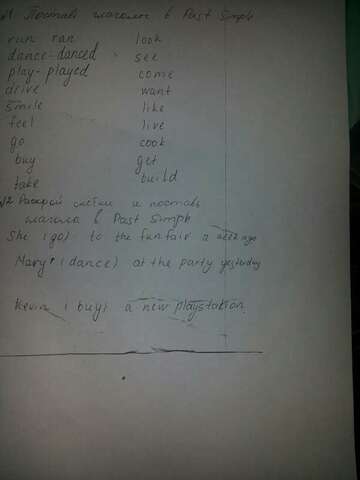 №1 Поставь глаголы в Past Simple
run ran look
dance-danced see
play-played come
drive want
smile like
feel live
go cook
buy get
take build
№2 Раскрой скобки и поставь
глагол в Past Simple
She (go) to the funfair a week ago
Mary (dance) at the party yesterday
Kevin (buy) a new playstation.